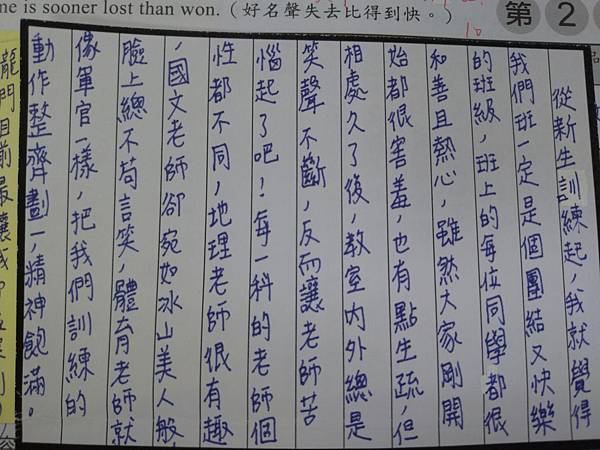 me is sooner lost than won.（好名聲失去比得到快。）
第 2
10
從新生訓練起，我就覺得
我們班一定是個團結又快樂
的班級，班上的每位同學都很
和善且熱心，雖然大家剛開
始都很害羞，也有點生疏，但
相處久了後，教室內外總是
笑聲不斷，反而讓老師苦
惱起了吧！每一科的老師個
性都不同，地理老師很有趣
，國文老師卻宛如冰山美人般，
臉上總不苟言笑，體育老師就
像軍官一樣，把我們訓練的
動作整齊劃一，精神飽滿。
龍門目前最讓我